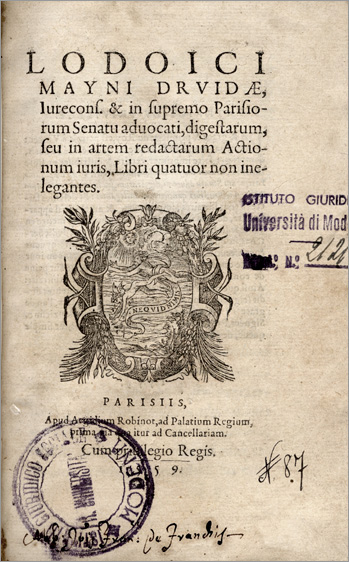 LODOICI
MAYNI DRVIDÆ,
Iurecons. & in supremo Parisio-
rum Senatu aduocati, digestarum,
seu in artem redactarum Actio-
num iuris, Libri quatuor non ine-
legantes.
ISTITUTO GIURID
Università di Mod
N.º 2121
NEQVID
PARISIIS,
Apud Robinot, ad Palatium Regium,
itur ad Cancellariam.
Cum priuilegio Regis.
59.
#87
de Franchis